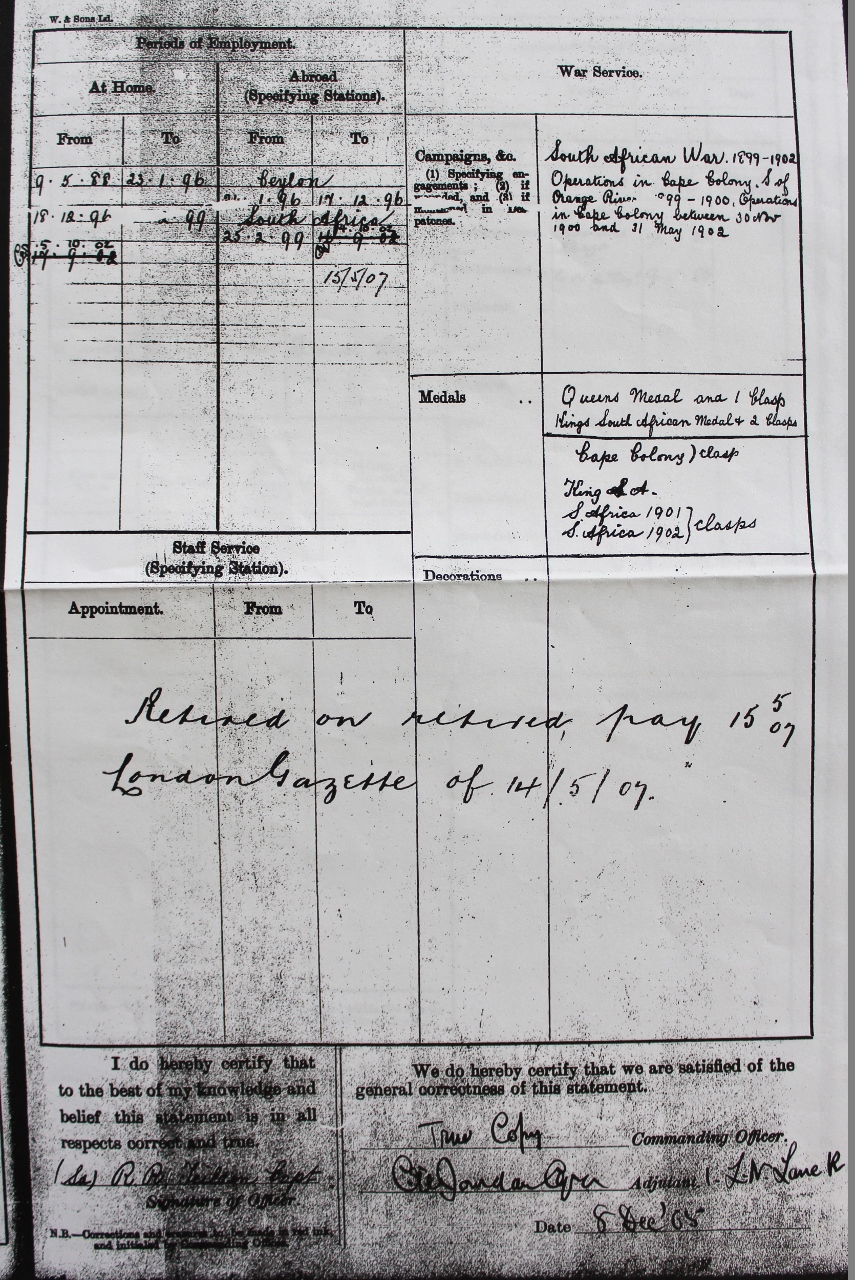 W. & Sons Ld.
Periods of Employment.
At Home.
Abroad
(Specifying Stations).
War Service.
From To From To
9. 5. 88 23. 1. 96 Ceylon
1. 96 17. 12. 96
18. 12. 96 99 South Africa
25. 2. 99
15/5/07
Campaigns, &c.
(1) Specifying en-
gagements; (2) if
and (3) if
in
South African War. 1899-1902
Operations in Cape Colony, S of
Orange River 99 - 1900, Operations
in Cape Colony between 30 Nov
1900 and 31 May 1902
Medals ..
Queens Medal and 1 Clasp
Kings South African Medal & 2 Clasps
Cape Colony) clasp
King S. A.
S Africa 1901
S. Africa 1902 } clasps
Staff Service
(Specifying Station).
Decorations ..
Appointment. From To
Retired on retired, pay 15 5 07
London Gazette of 14/5/07.
I do hereby certify that
to the best of my knowledge and
belief this statement is in all
respects correct and true.
R. B. Capt.
Signature of Officer.
N.B.—Corrections and erasures to be made in red ink,
and initialed by Commanding Officer.
We do hereby certify that we are satisfied of the
general correctness of this statement.
True Copy Commanding Officer.
Adjutant L. N. Lane R
Date 8 Dec '05